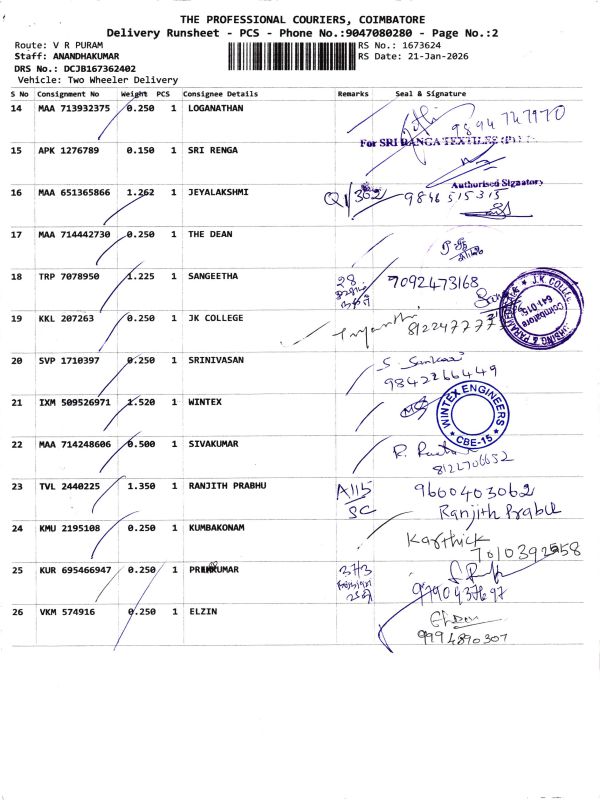 THE PROFESSIONAL COURIERS, COIMBATORE
Delivery Runsheet - PCS - Phone No.:9047080280 - Page No.:2
Route: V R PURAM
RS No.: 1673624
Staff: ANANDHAKUMAR
RS Date: 21-Jan-2026
DRS No.: DCJB167362402
Vehicle: Two Wheeler Delivery
S No Consignment No Weight PCS Consignee Details Remarks Seal & Signature
14 MAA 713932375 0.250 1 LOGANATHAN 9894747970
For SRI RANGA TEXTILES (P) LTD.
15 APK 1276789 0.150 1 SRI RENGA
Authorised Signatory
16 MAA 651365866 1.262 1 JEYALAKSHMI Q1/302 9846515315
17 MAA 714442730 0.250 1 THE DEAN
18 TRP 7078950 1.225 1 SANGEETHA 28 7092473168
J.K. COLLEGE
Coimbatore
641 015.
19 KKL 207263 0.250 1 JK COLLEGE
20 SVP 1710397 0.250 1 SRINIVASAN S. Sankar
9842266449
21 IXM 509526971 1.520 1 WINTEX
WINTEX ENGINEERS
* CBE-15 *
22 MAA 714248606 0.500 1 SIVAKUMAR
8122706652
23 TVL 2440225 1.350 1 RANJITH PRABHU A115 9600403062
SC Ranjith Prabhu
24 KMU 2195108 0.250 1 KUMBAKONAM Karthick
25 KUR 695466947 0.250 1 PREMKUMAR 373
9790437697
26 VKM 574916 0.250 1 ELZIN
9994890307